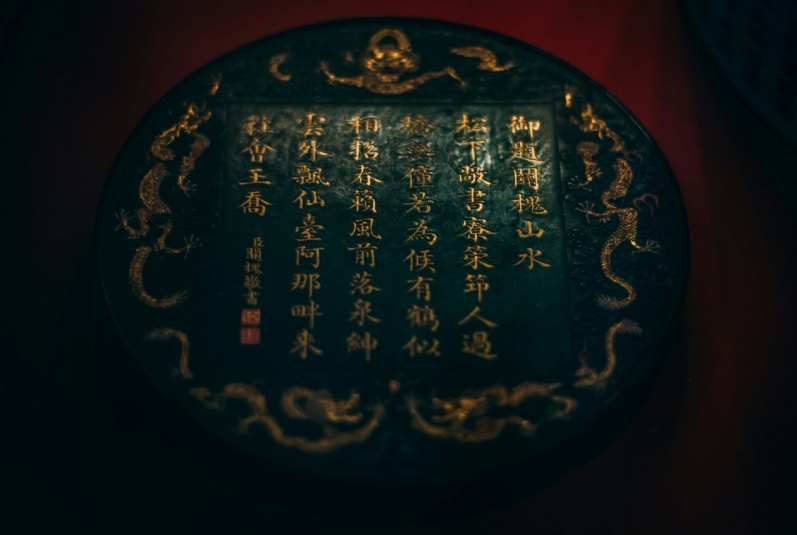 御題關槐山水
松下敞書寮策筇人過
橋無僮若為候有鶴似
相招春籟風前落泉紳
雲外飄仙臺阿那畔來
社會王喬
臣關槐敬書